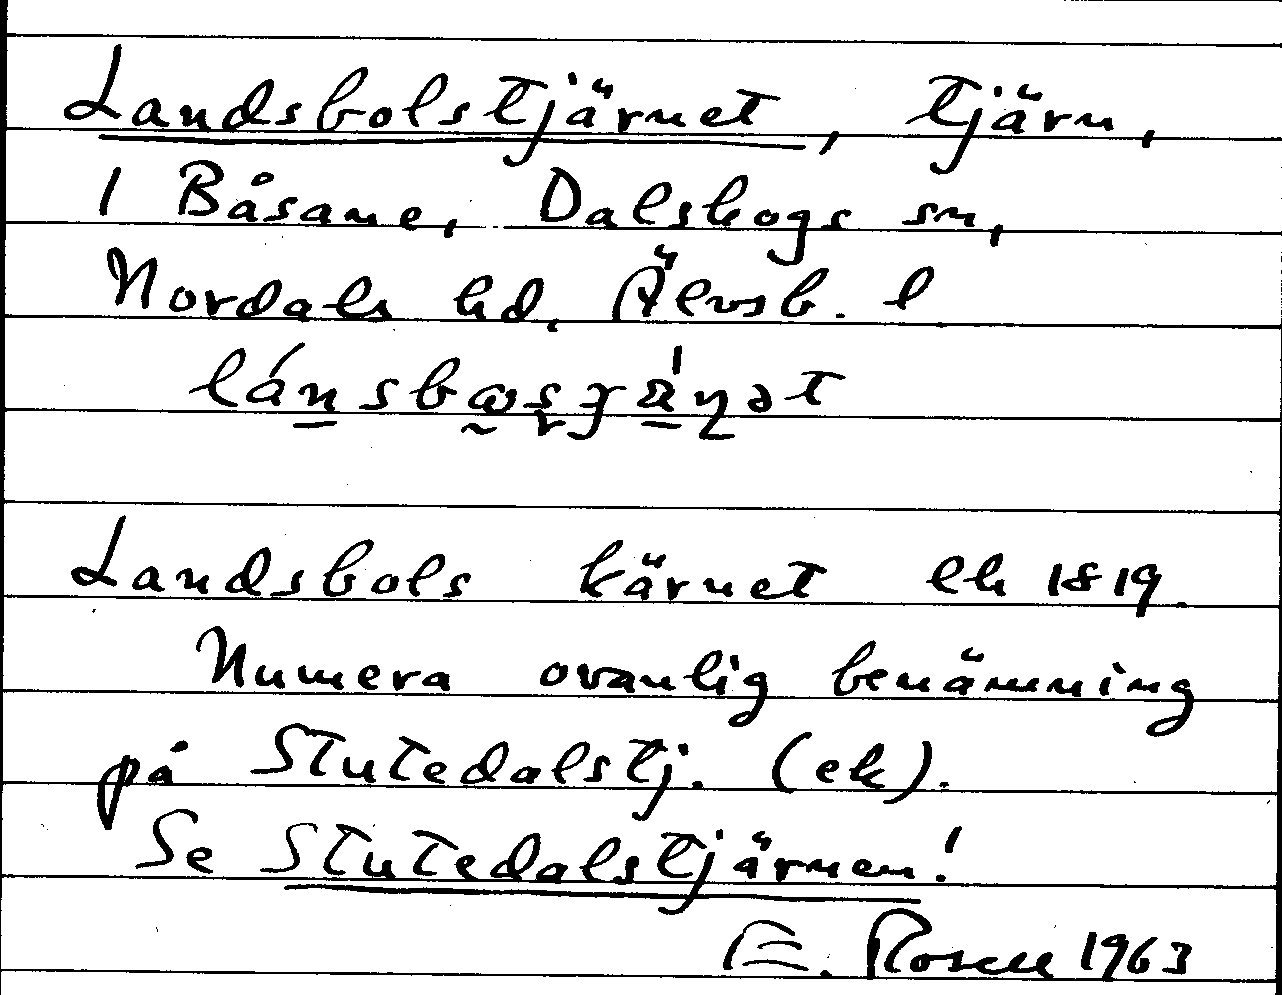 Landsbolstjärnet, tjärn,
I Båsane, Dalskogs sn,
Nordals hd, Älvsb. l
Landsbols kärnet ek 1819.
Numera ovanlig benämning
på Stutedalstj. (ek).
Se Stutedalstjärnen!
E. Rosell 1963